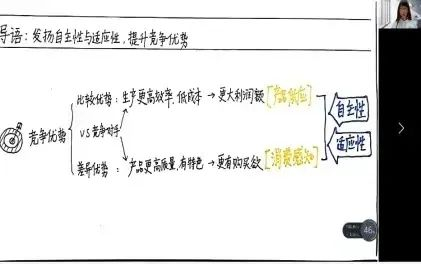 导语：发扬自主性与适应性，提升竞争优势
比较优势：生产更高效率、低成本→更大利润额[产品供应]
自主性
竞争优势
VS竞争对手
适应性
差异优势：产品更高质量，有特色→更有购买欲[消费感知]
46